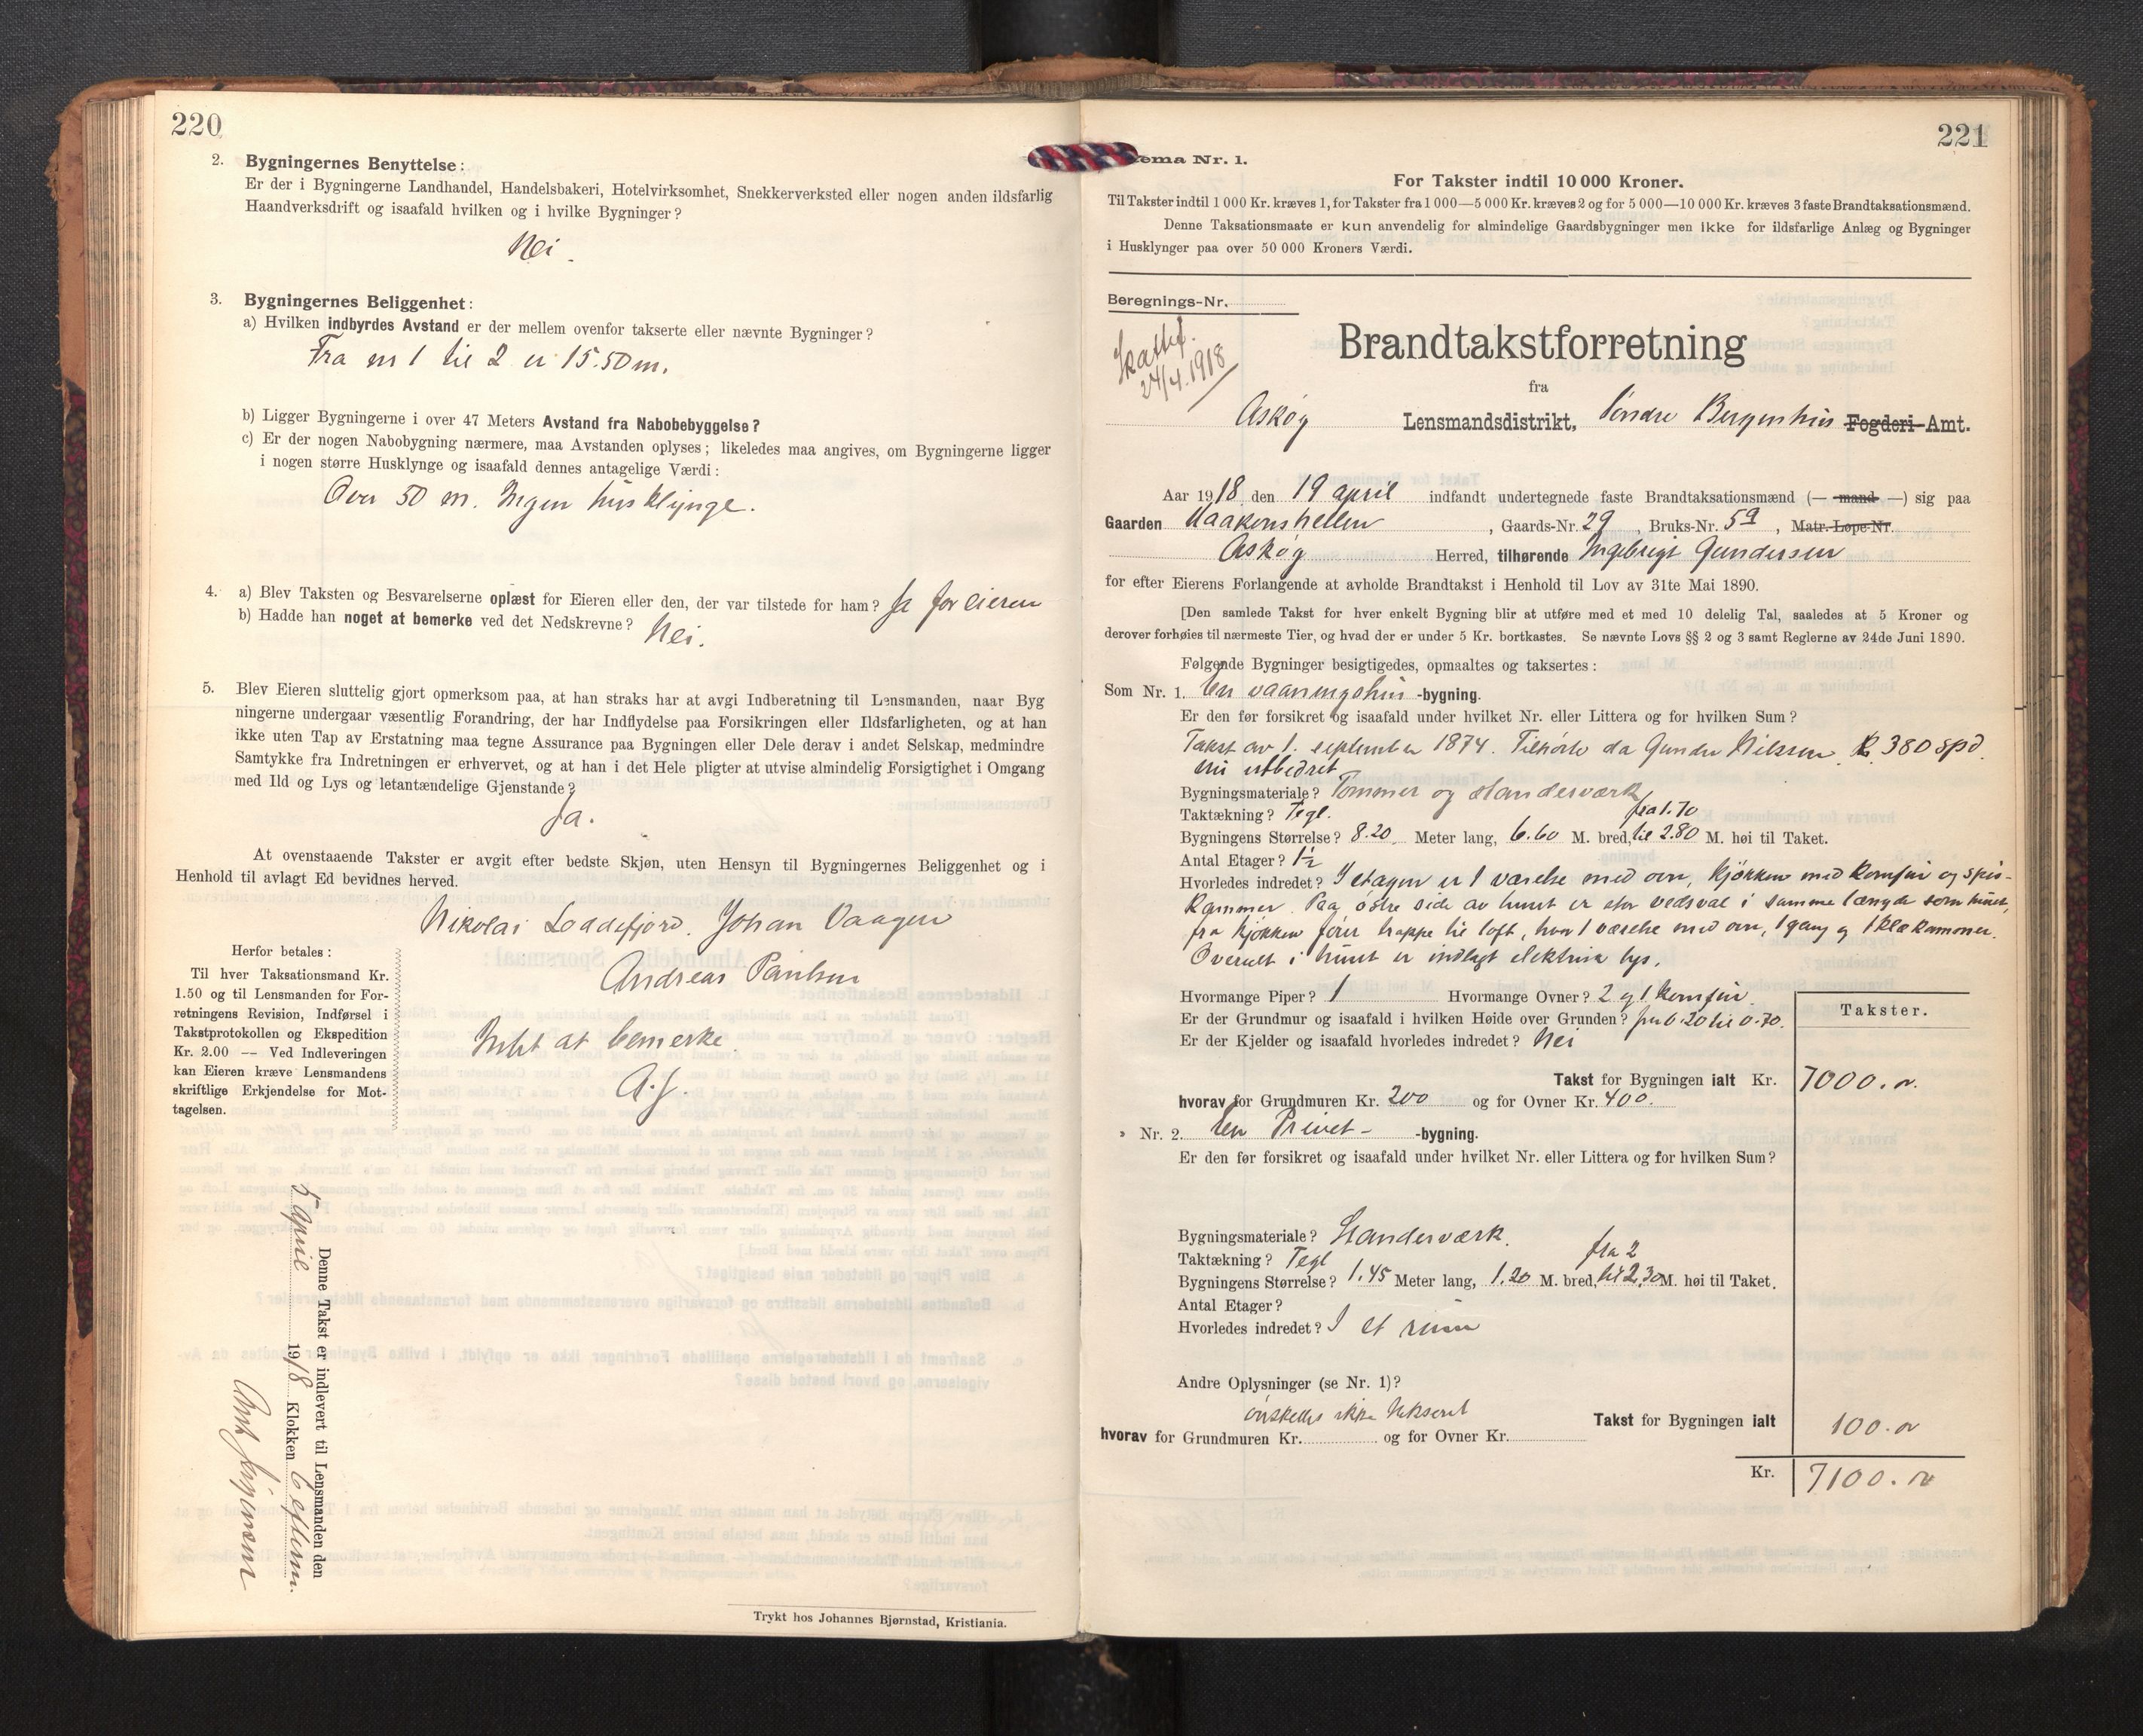 220
2. Bygningernes Benyttelse:
Er der i Bygningerne Landhandel, Handelsbakeri, Hotelvirksomhet, Snekkerverksted eller nogen anden ildsfarlig
Haandverksdrift og isaafald hvilken og i hvilke Bygninger?
Nei.
3. Bygningernes Beliggenhet:
a) Hvilken indbyrdes Avstand er der mellem ovenfor takserte eller nævnte Bygninger?
Fra nr 1 til 2 er 15.50 m.
b) Ligger Bygningerne i over 47 Meters Avstand fra Nabobebyggelse?
c) Er der nogen Nabobygning nærmere, maa Avstanden oplyses; likeledes maa angives, om Bygningerne ligger
i nogen større Husklynge og isaafald dennes antagelige Værdi:
Over 50 m. Ingen husklynge.
4. a) Blev Taksten og Besvarelserne oplæst for Eieren eller den, der var tilstede for ham? Ja for eieren
b) Hadde han noget at bemerke ved det Nedskrevne? Nei.
5. Blev Eieren sluttelig gjort opmerksom paa, at han straks har at avgi Indberetning til Lensmanden, naar Byg
ningerne undergaar væsentlig Forandring, der har Indflydelse paa Forsikringen eller Ildsfarligheten, og at han
ikke uten Tap av Erstatning maa tegne Assurance paa Bygningen eller Dele derav i andet Selskap, medmindre
Samtykke fra Indretningen er erhvervet, og at han i det Hele pligter at utvise almindelig Forsigtighet i Omgang
med Ild og Lys og letantændelige Gjenstande?
Ja.
At ovenstaaende Takster er avgit efter bedste Skjøn, uten Hensyn til Bygningernes Beliggenhet og i
Henhold til avlagt Ed bevidnes herved.
Nikolai Loddefjord. Johan Vaagen
Andreas Paulsen
Herfor betales:
Til hver Taksationsmand Kr.
1.50 og til Lensmanden for For-
retningens Revision, Indførsel i
Takstprotokollen og Ekspedition
Kr. 2.00 — Ved Indleveringen
kan Eieren kræve Lensmandens
skriftlige Erkjendelse for Mot-
tagelsen.
Intet at bemerke.
A.J.
Denne Takst er indlevert til Lensmanden den
5 april 1918 Klokken 6 efterm.
Trykt hos Johannes Bjørnstad, Kristiania.
221
ema Nr. 1.
For Takster indtil 10 000 Kroner.
Til Takster indtil 1 000 Kr. kræves 1, for Takster fra 1 000—5 000 Kr. kræves 2 og for 5 000—10 000 Kr. kræves 3 faste Brandtaksationsmænd.
Denne Taksationsmaate er kun anvendelig for almindelige Gaardsbygninger men ikke for ildsfarlige Anlæg og Bygninger
i Husklynger paa over 50 000 Kroners Værdi.
Beregnings-Nr.
24/4.1918
Brandtakstforretning
fra
Askøy Lensmandsdistrikt, Søndre Bergenhus Fogderi-Amt.
Aar 1918 den 19 april indfandt undertegnede faste Brandtaksationsmænd (— mand —) sig paa
Gaarden Haakonshellen, Gaards-Nr. 29, Bruks-Nr. 59, Matr.-Løpe-Nr.
Askøy Herred, tilhørende Ingebrigt Gundersen
for efter Eierens Forlangende at avholde Brandtakst i Henhold til Lov av 31te Mai 1890.
[Den samlede Takst for hver enkelt Bygning blir at utføre med et med 10 delelig Tal, saaledes at 5 Kroner og
derover forhøies til nærmeste Tier, og hvad der er under 5 Kr. bortkastes. Se nævnte Lovs §§ 2 og 3 samt Reglerne av 24de Juni 1890.
Følgende Bygninger besigtigedes, opmaaltes og taksertes:
Som Nr. 1. En vaaningshus -bygning.
Er den før forsikret og isaafald under hvilket Nr. eller Littera og for hvilken Sum?
Takst av 1. september 1874. Tilhørte da Gunder Nilssen. 380 spd.
nu utbedret
Bygningsmateriale? Tømmer og standerværk
Taktækning? Tegl. fra 1.70
Bygningens Størrelse? 8.20 Meter lang, 6.60 M. bred, til 2.80 M. høi til Taket.
Antal Etager? 1½
Hvorledes indredet? I etagen er 1 værelse med ovn, kjøkken med komfur og spis-
kammer. Paa østre side av huset er stor vedsval i samme længde som huset,
fra kjøkken fører trappe til loft, hvor 1 værelse med ovn, 1 gang og 1 klækammer.
Overalt i huset er indlagt elektrisk lys.
Hvormange Piper? 1 Hvormange Ovner? 2 og 1 komfur.
Er der Grundmur og isaafald i hvilken Høide over Grunden? fra 0.20 til 0.70.
Er der Kjelder og isaafald hvorledes indredet? Nei
Takster.
Takst for Bygningen ialt Kr. 7000.
hvorav for Grundmuren Kr. 200 og for Ovner Kr. 400.
» Nr. 2. En Privet- -bygning.
Er den før forsikret og isaafald under hvilket Nr. eller Littera og for hvilken Sum?
Bygningsmateriale? Standerværk.
Taktækning? Tegl fra 2
Bygningens Størrelse? 1.45 Meter lang, 1.20 M. bred, til 2,30 M. høi til Taket.
Antal Etager?
Hvorledes indredet? I et rum
Andre Oplysninger (se Nr. 1)?
ønskedes ikke takseret
Takst for Bygningen ialt 100.
hvorav for Grundmuren Kr. og for Ovner Kr.
Kr. 7100.